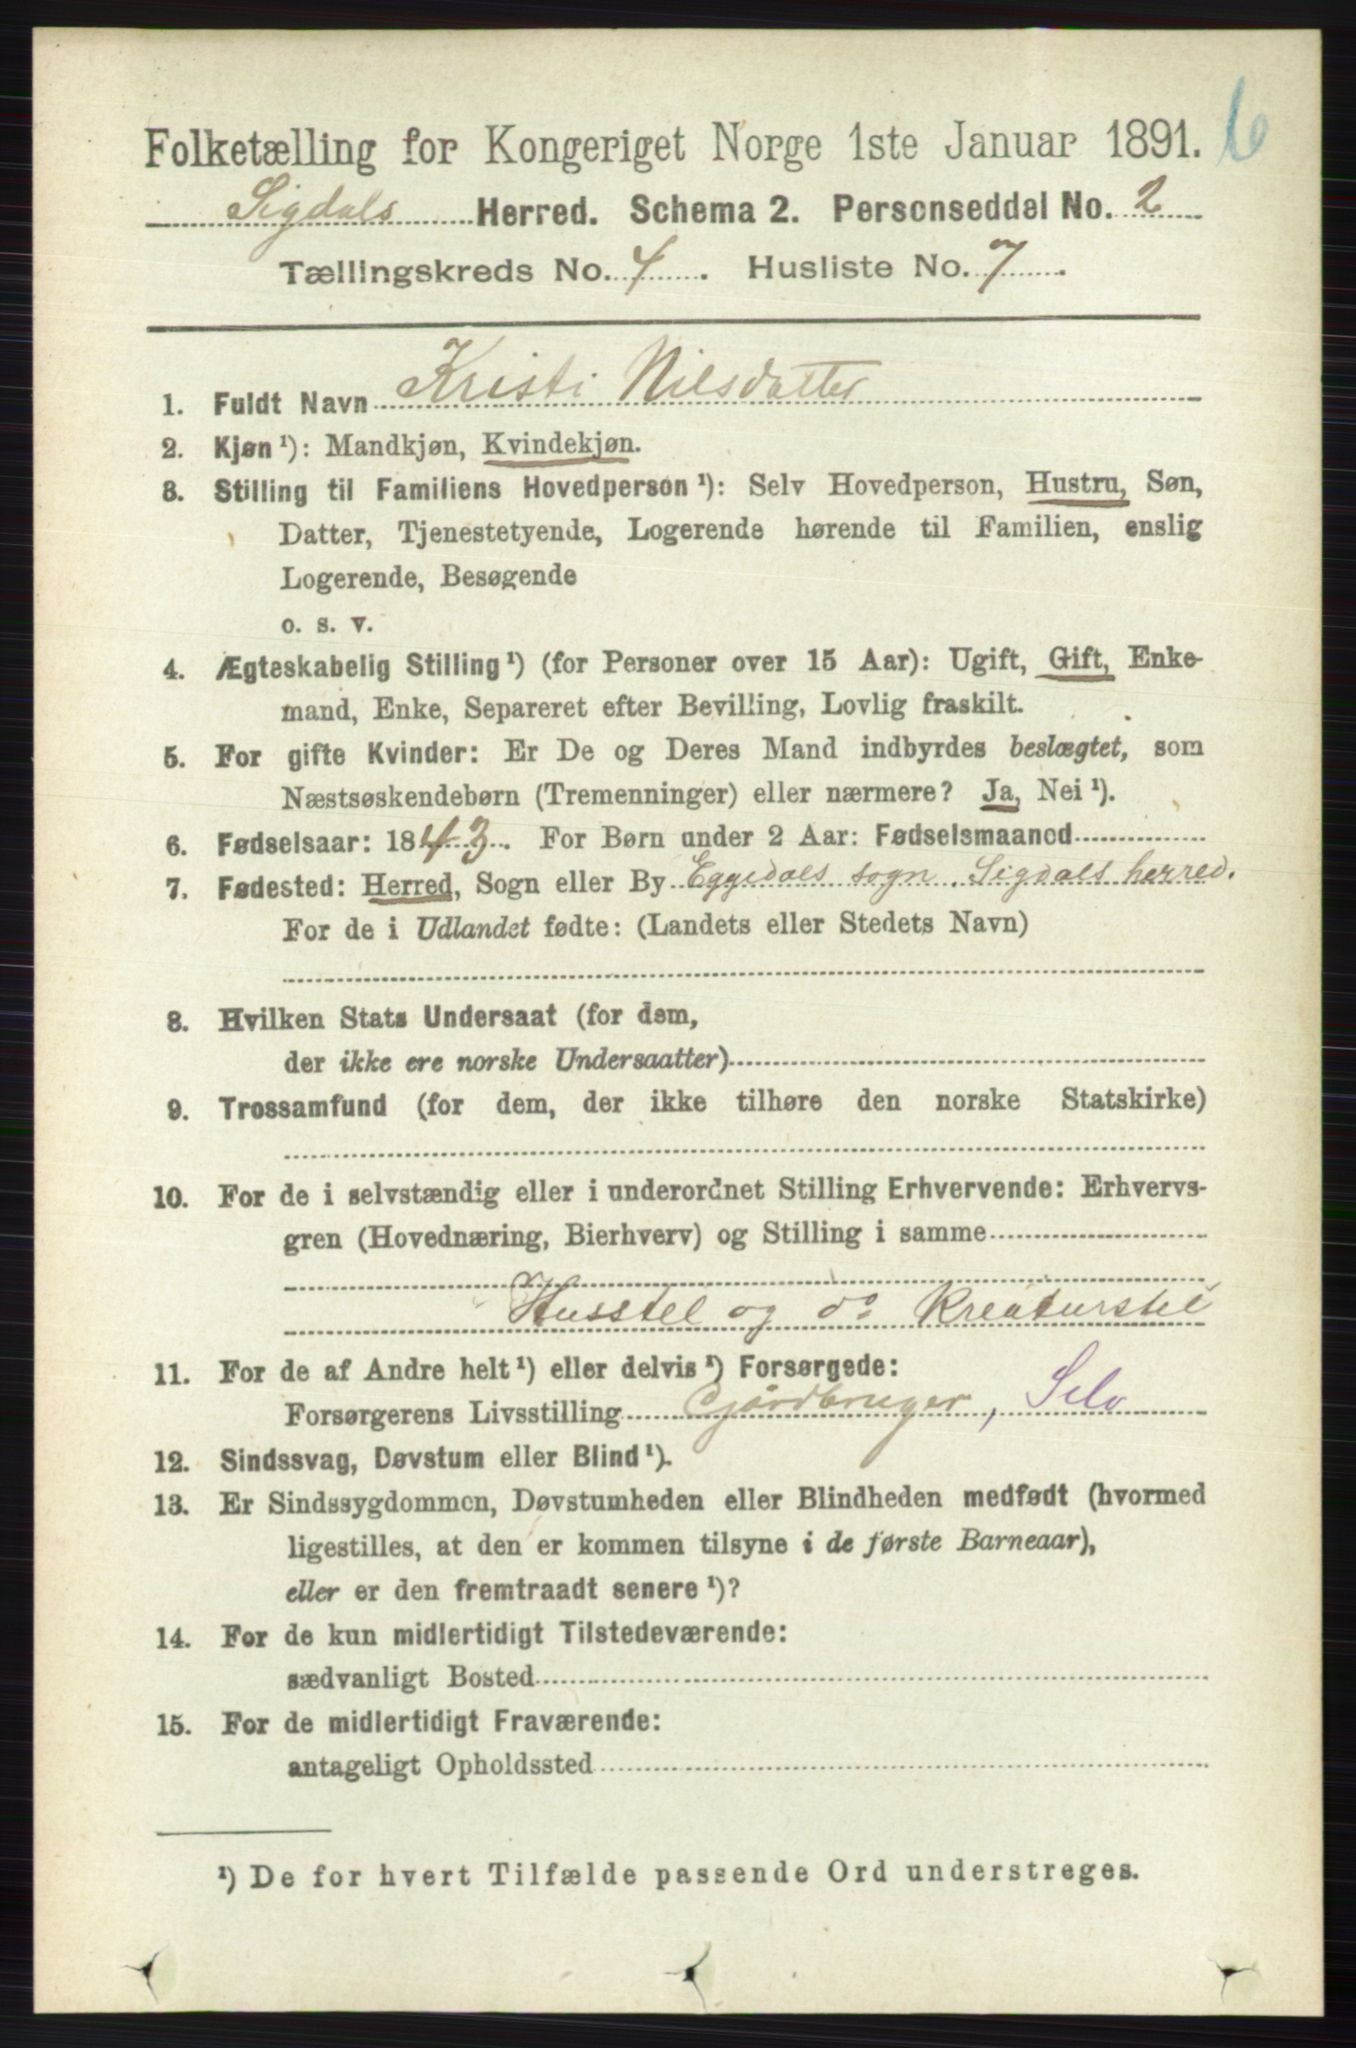 6
Folketælling for Kongeriget Norge 1ste Januar 1891.
Sigdals Herred. Schema 2. Personseddel No. 2
Tællingskreds No. 4. Husliste No. 7.
1. Fuldt Navn Kristi Nilsdatter
2. Kjøn ¹): Mandkjøn, Kvindekjøn.
3. Stilling til Familiens Hovedperson ¹): Selv Hovedperson, Hustru, Søn,
Datter, Tjenestetyende, Logerende hørende til Familien, enslig
Logerende, Besøgende
o. s. v.
4. Ægteskabelig Stilling ¹) (for Personer over 15 Aar): Ugift, Gift, Enke-
mand, Enke, Separeret efter Bevilling, Lovlig fraskilt.
5. For gifte Kvinder: Er De og Deres Mand indbyrdes beslægtet, som
Næstsøskendebørn (Tremenninger) eller nærmere? Ja, Nei ¹).
6. Fødselsaar: 1843. For Børn under 2 Aar: Fødselsmaaned
7. Fødested: Herred, Sogn eller By Eggedals sogn. Sigdals herred.
For de i Udlandet fødte: (Landets eller Stedets Navn)
8. Hvilken Stats Undersaat (for dem,
der ikke ere norske Undersaatter)
9. Trossamfund (for dem, der ikke tilhøre den norske Statskirke)
10. For de i selvstændig eller i underordnet Stilling Erhvervende: Erhvervs-
gren (Hovednæring, Bierhverv) og Stilling i samme
Husstel og do Kreaturstel
11. For de af Andre helt ¹) eller delvis ¹) Forsørgede:
Forsørgerens Livsstilling Gårdbruger, Selv
12. Sindssvag, Døvstum eller Blind ¹).
13. Er Sindssygdommen, Døvstumheden eller Blindheden medfødt (hvormed
ligestilles, at den er kommen tilsyne i de første Barneaar),
eller er den fremtraadt senere ¹)?
14. For de kun midlertidigt Tilstedeværende:
sædvanligt Bosted
15. For de midlertidigt Fraværende:
antageligt Opholdssted
¹) De for hvert Tilfælde passende Ord understreges.